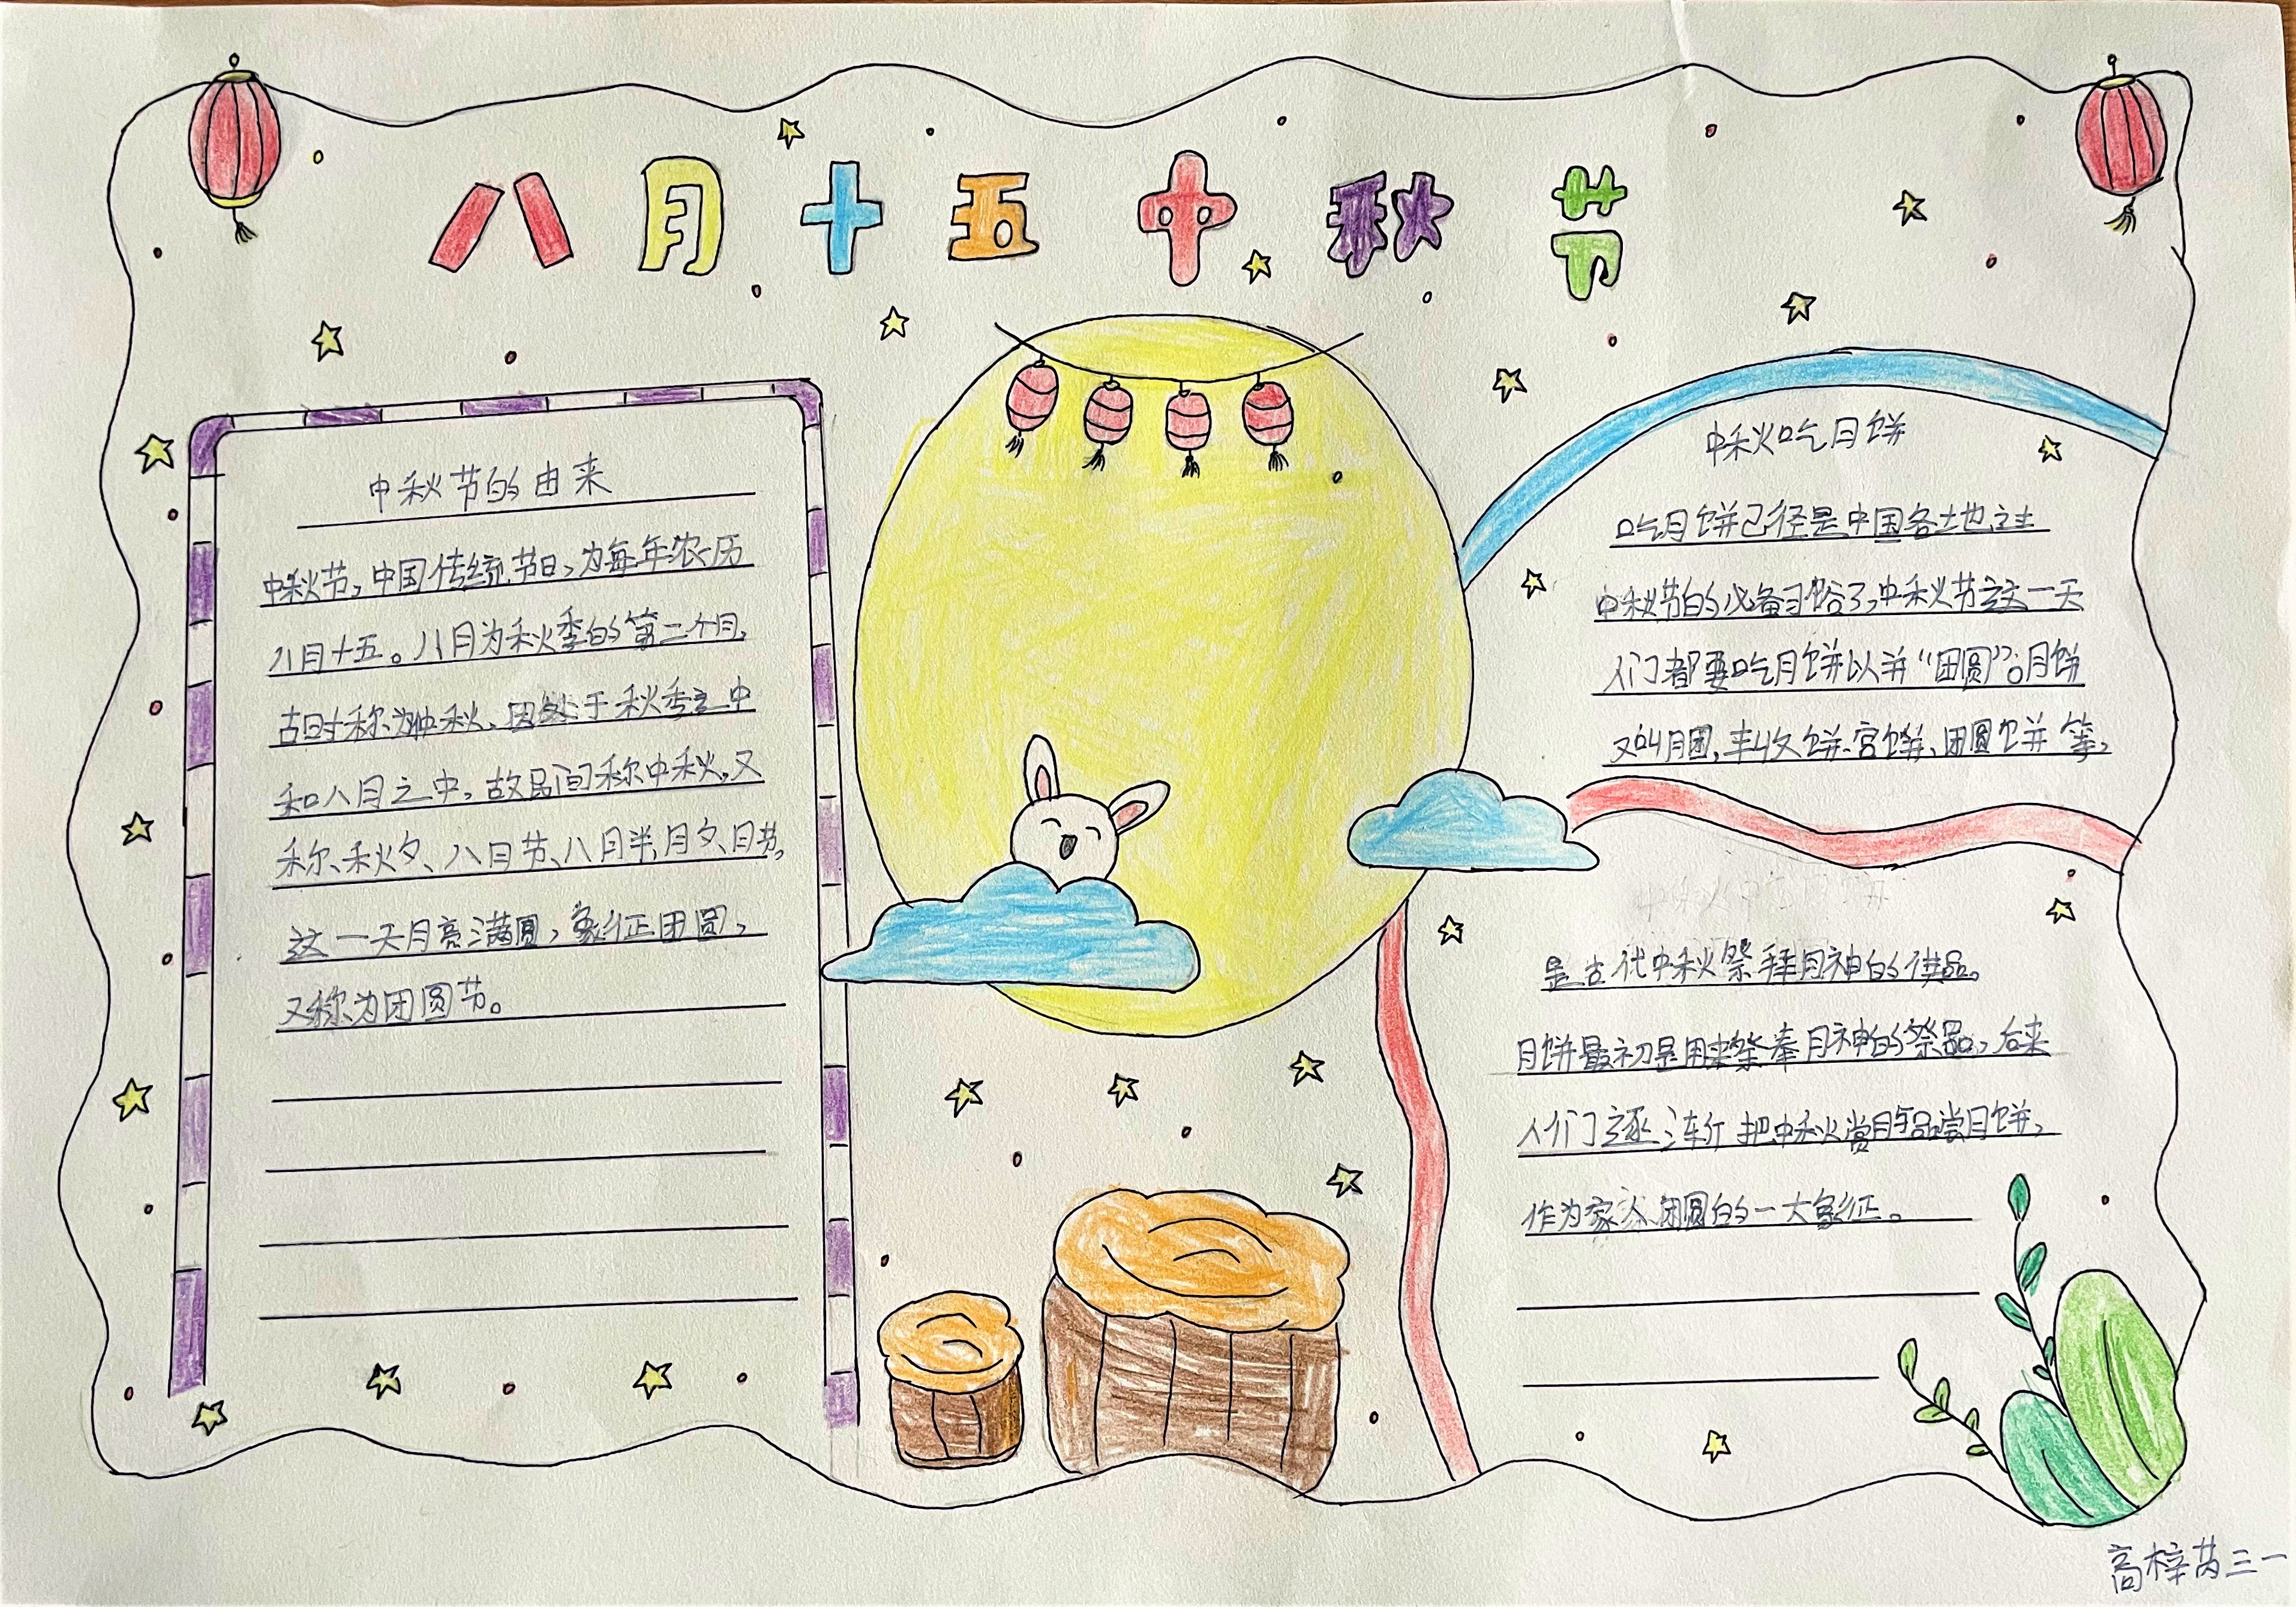 八月十五中秋节
中秋节的由来
中秋节,中国传统节日,为每年农历
八月十五。八月为秋季的第二个月,
古时称为仲秋、因处于秋季之中
和八月之中,故民间称中秋,又
称、秋夕、八月节、八月半,月夕、月节,
这一天月亮满圆,象征团圆,
又称为团圆节。
中秋吃月饼
吃月饼已径是中国各土地过
中秋节的必备习俗了,中秋节这一天
人们都要吃月饼以并“团圆”。月饼
又叫月团,丰收饼、宫饼、团圆饼等,
是古代中秋祭拜月神的供品。
月饼最初是用来祭奉月神的祭品,后来
人们逐渐把中秋赏月与品尝月饼,
作为家人团圆的一大象征。
高梓芮三一